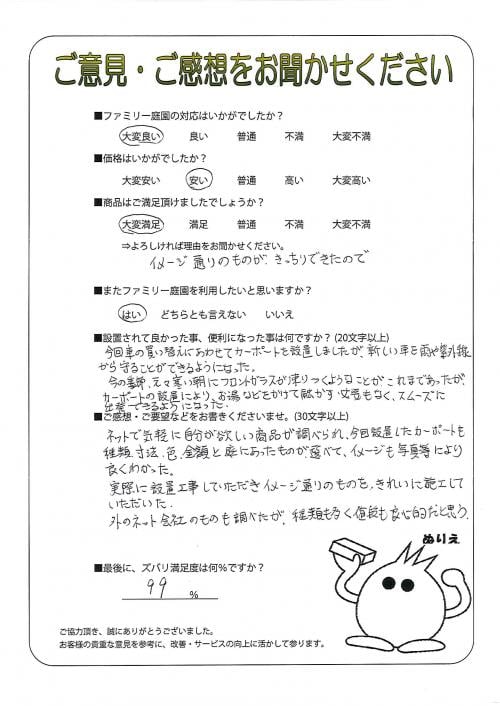 ご意見・ご感想をお聞かせください
■ファミリー庭園の対応はいかがでしたか？
大変良い 良い 普通 不満 大変不満
■価格はいかがでしたか？
大変安い 安い 普通 高い 大変高い
■商品はご満足頂けましたでしょうか？
大変満足 満足 普通 不満 大変不満
⇒よろしければ理由をお聞かせください。
イメージ通りのものが、きっちりできたので
■またファミリー庭園を利用したいと思いますか？
はい どちらとも言えない いいえ
■設置されて良かった事、便利になった事は何ですか？(20文字以上)
今回車の買い替えにあわせてカーポートを設置しましたが、新しい車を雨や紫外線
から守ることができるようになった。
今の季節、元々寒い朝にフロントガラスが凍りつくようなことがこれまであったが、
カーポートの設置により、お湯などをかけて融かす必要もなく、スムーズに
出発できるようになった。
■ご感想・ご要望などをお書きくださいませ。(30文字以上)
ネットで気軽に自分が欲しい商品が調べられ、今回設置したカーポートも
種類、寸法、色、金額と庭にあったものが選べて、イメージも写真等により
良くわかった。
実際に設置工事していただきイメージ通りのものを、きれいに施工して
いただいた。
外のネット会社のものも調べたが、種類も多く値段も良心的だと思う。
ぬりえ
■最後に、ズバリ満足度は何％ですか？
99 ％
ご協力頂き、誠にありがとうございました。
お客様の貴重な意見を参考に、改善・サービスの向上に活かして参ります。